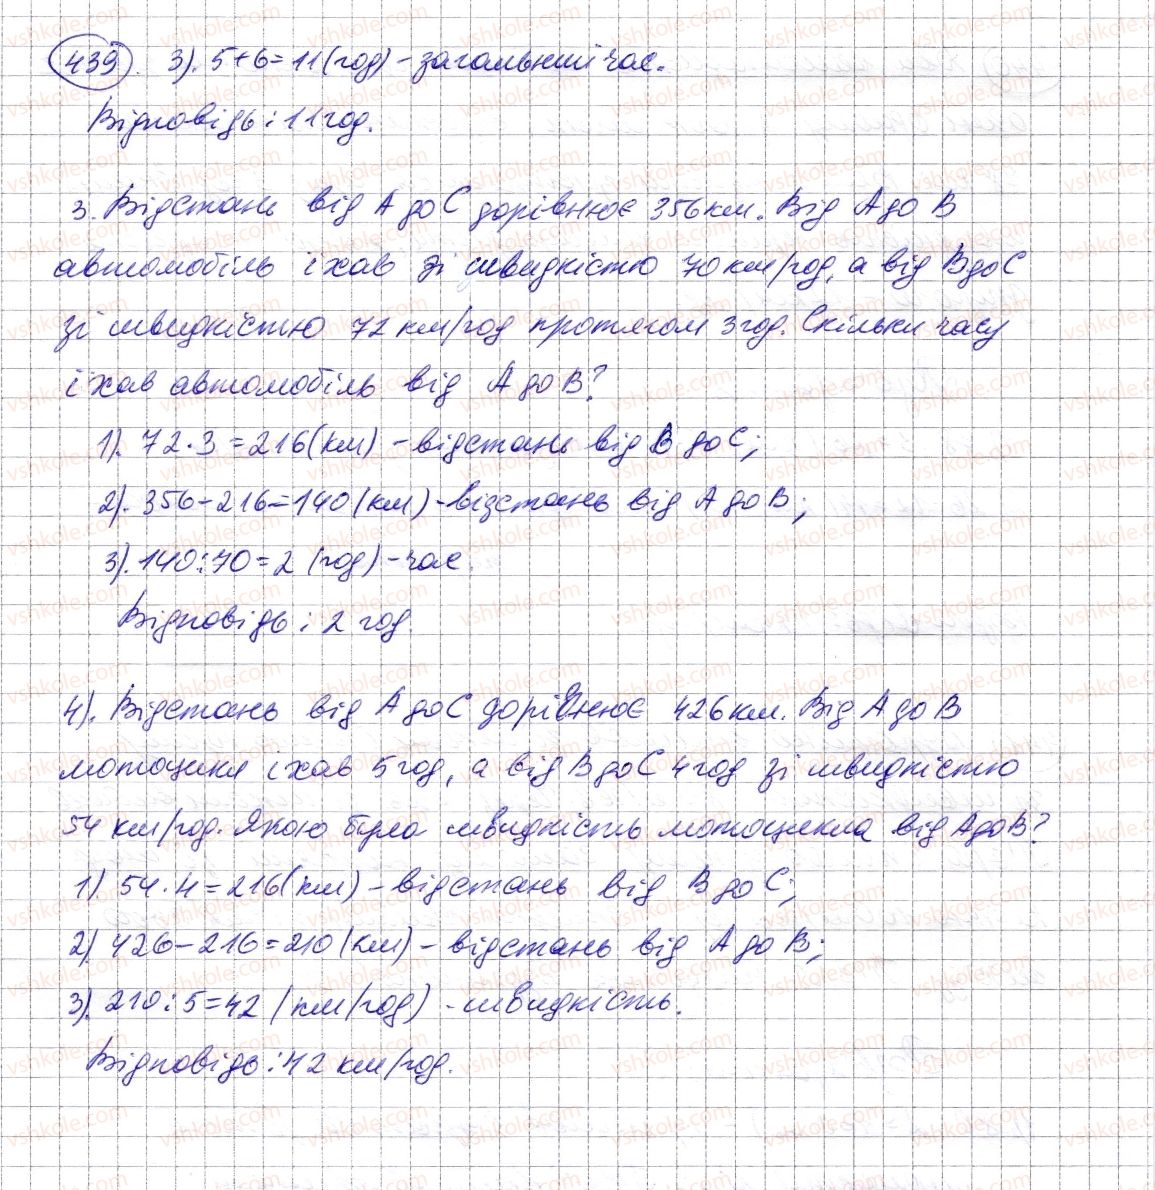 439. 3). 5+6=11(год) - загальний час.
Відповідь: 11 год.
3. Відстань від А до С дорівнює 356 км. Від А до В
автомобіль їхав зі швидкістю 70 км/год, а від В до С
зі швидкістю 72 км/год протягом 3 год. Скільки часу
їхав автомобіль від А до В?
1). 72·3=216(км) - відстань від В до С;
2). 356-216=140(км) - візстань від А до В;
3). 140:70=2 (год) - час.
Відповідь: 2 год.
4). Відстань від А до С дорівнює 426 км. Від А до В
мотоцикл їхав 5 год, а від В до С 4 год зі швидкістю
54 км/год. Якою була швидкість мотоцикла від А до В?
1) 54·4=216(км) - відстань від В до С;
2) 426-216=210(км) - відстань від А до В;
3). 210:5=42 (км/год) - швидкість.
Відповідь: 42 км/год.